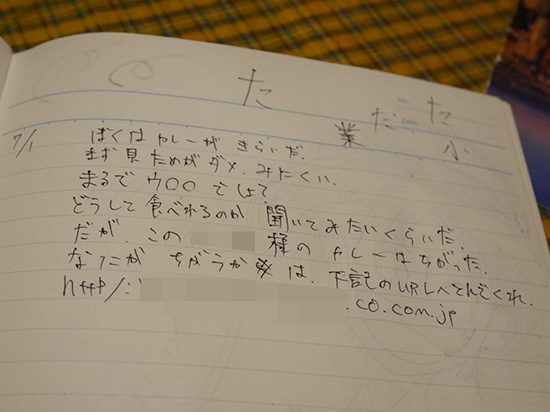 た
業 だ た
小
7/1 ぼくはカレーがきらいだ。
まず見ためがダメ、みにくい。
まるでウ〇〇でしょ?
どうして食べれるのか 聞いてみたいくらいだ。
だが、この 様のカレーはちがった。
なにがちがうか は、下記のURLへとんでくれ。
http/:
.co.com.jp